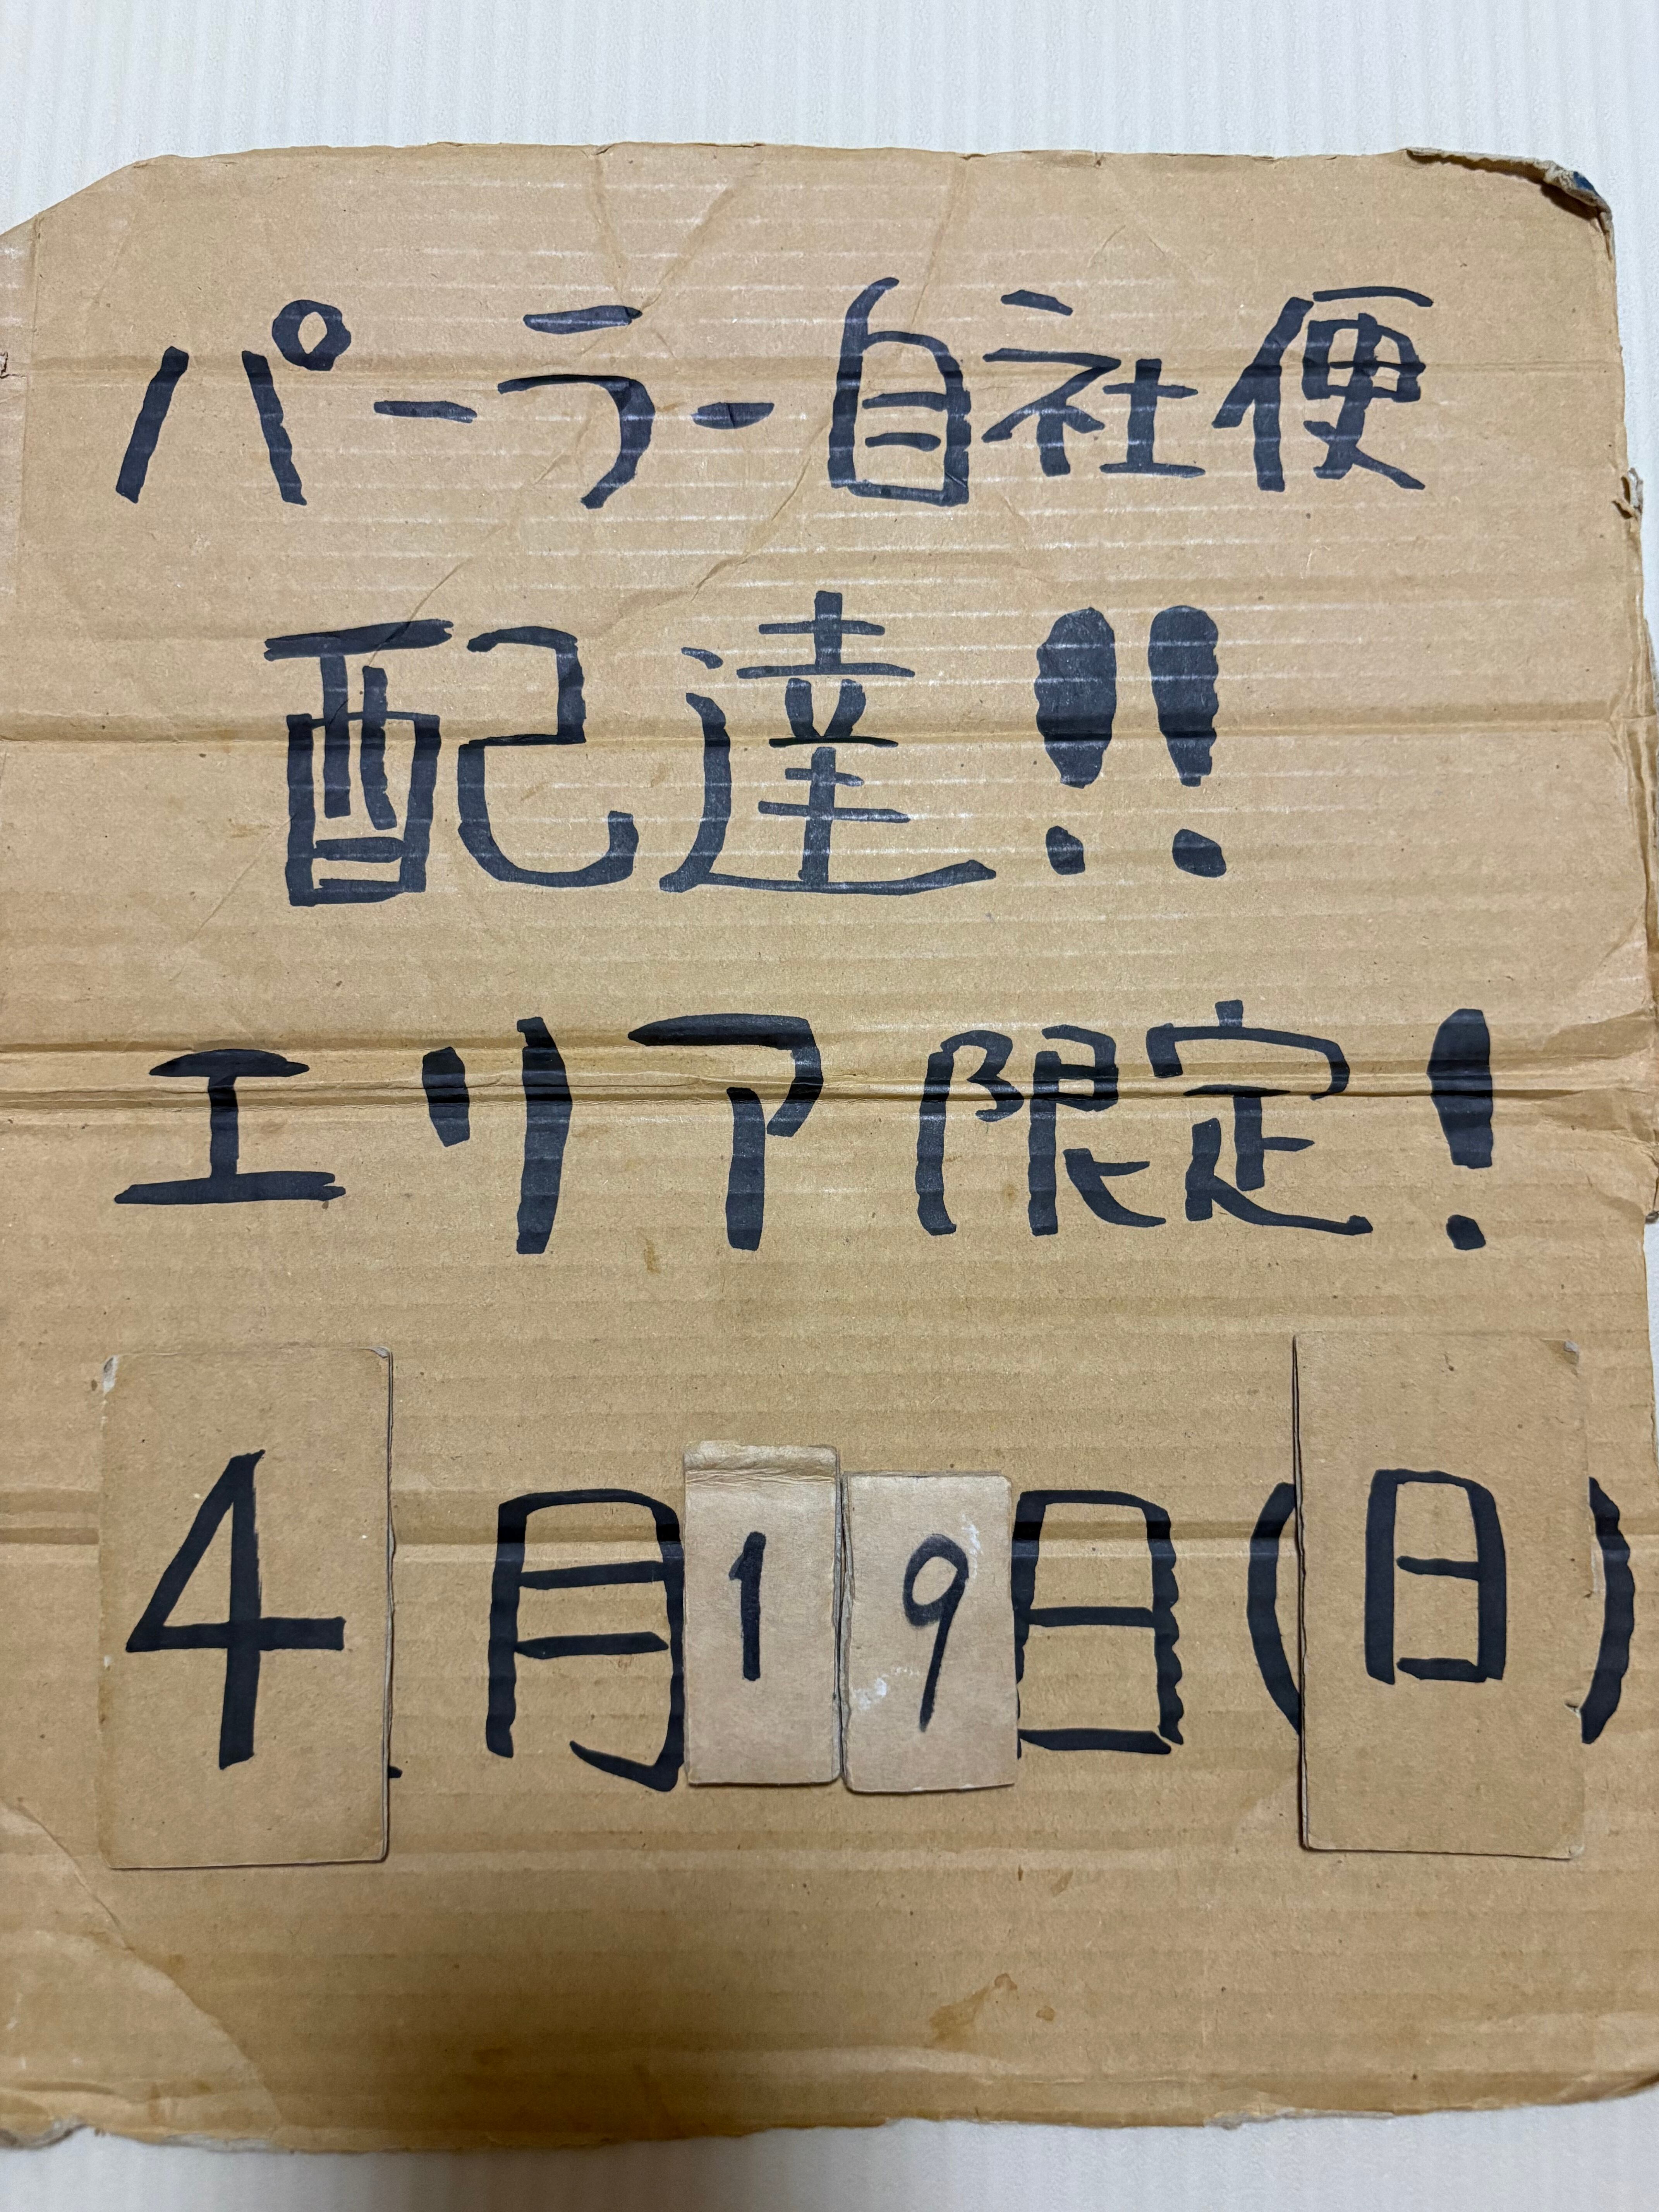 パーラー自社便
配達!!
エリア限定!
4月19日(日)